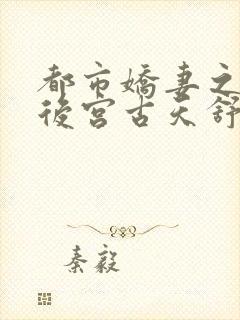 都市嬌妻之
後宮古天舒
秦毅